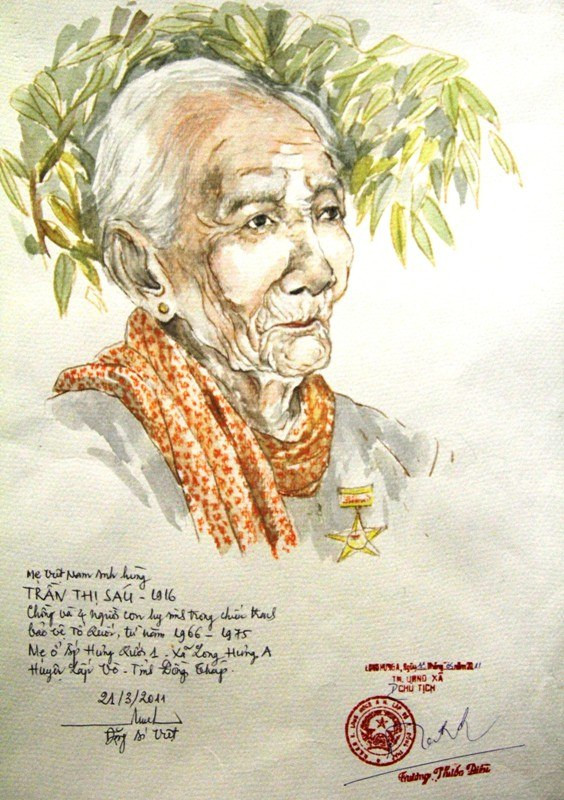 Mẹ Việt Nam Anh hùng
TRẦN THỊ SÁU - 1916
Chồng và 4 người con hy sinh trong chiến tranh
bảo vệ Tổ Quốc, từ năm 1966 - 1975
Mẹ ở ấp Hưng Quới 1 - Xã Long Hưng A
Huyện Lấp Vò - Tỉnh Đồng Tháp.
21/3/2011
Đặng Ái Việt
LONG HƯNG A, Ngày tháng năm 2011
TM. UBND XÃ
CHỦ TỊCH
Trương